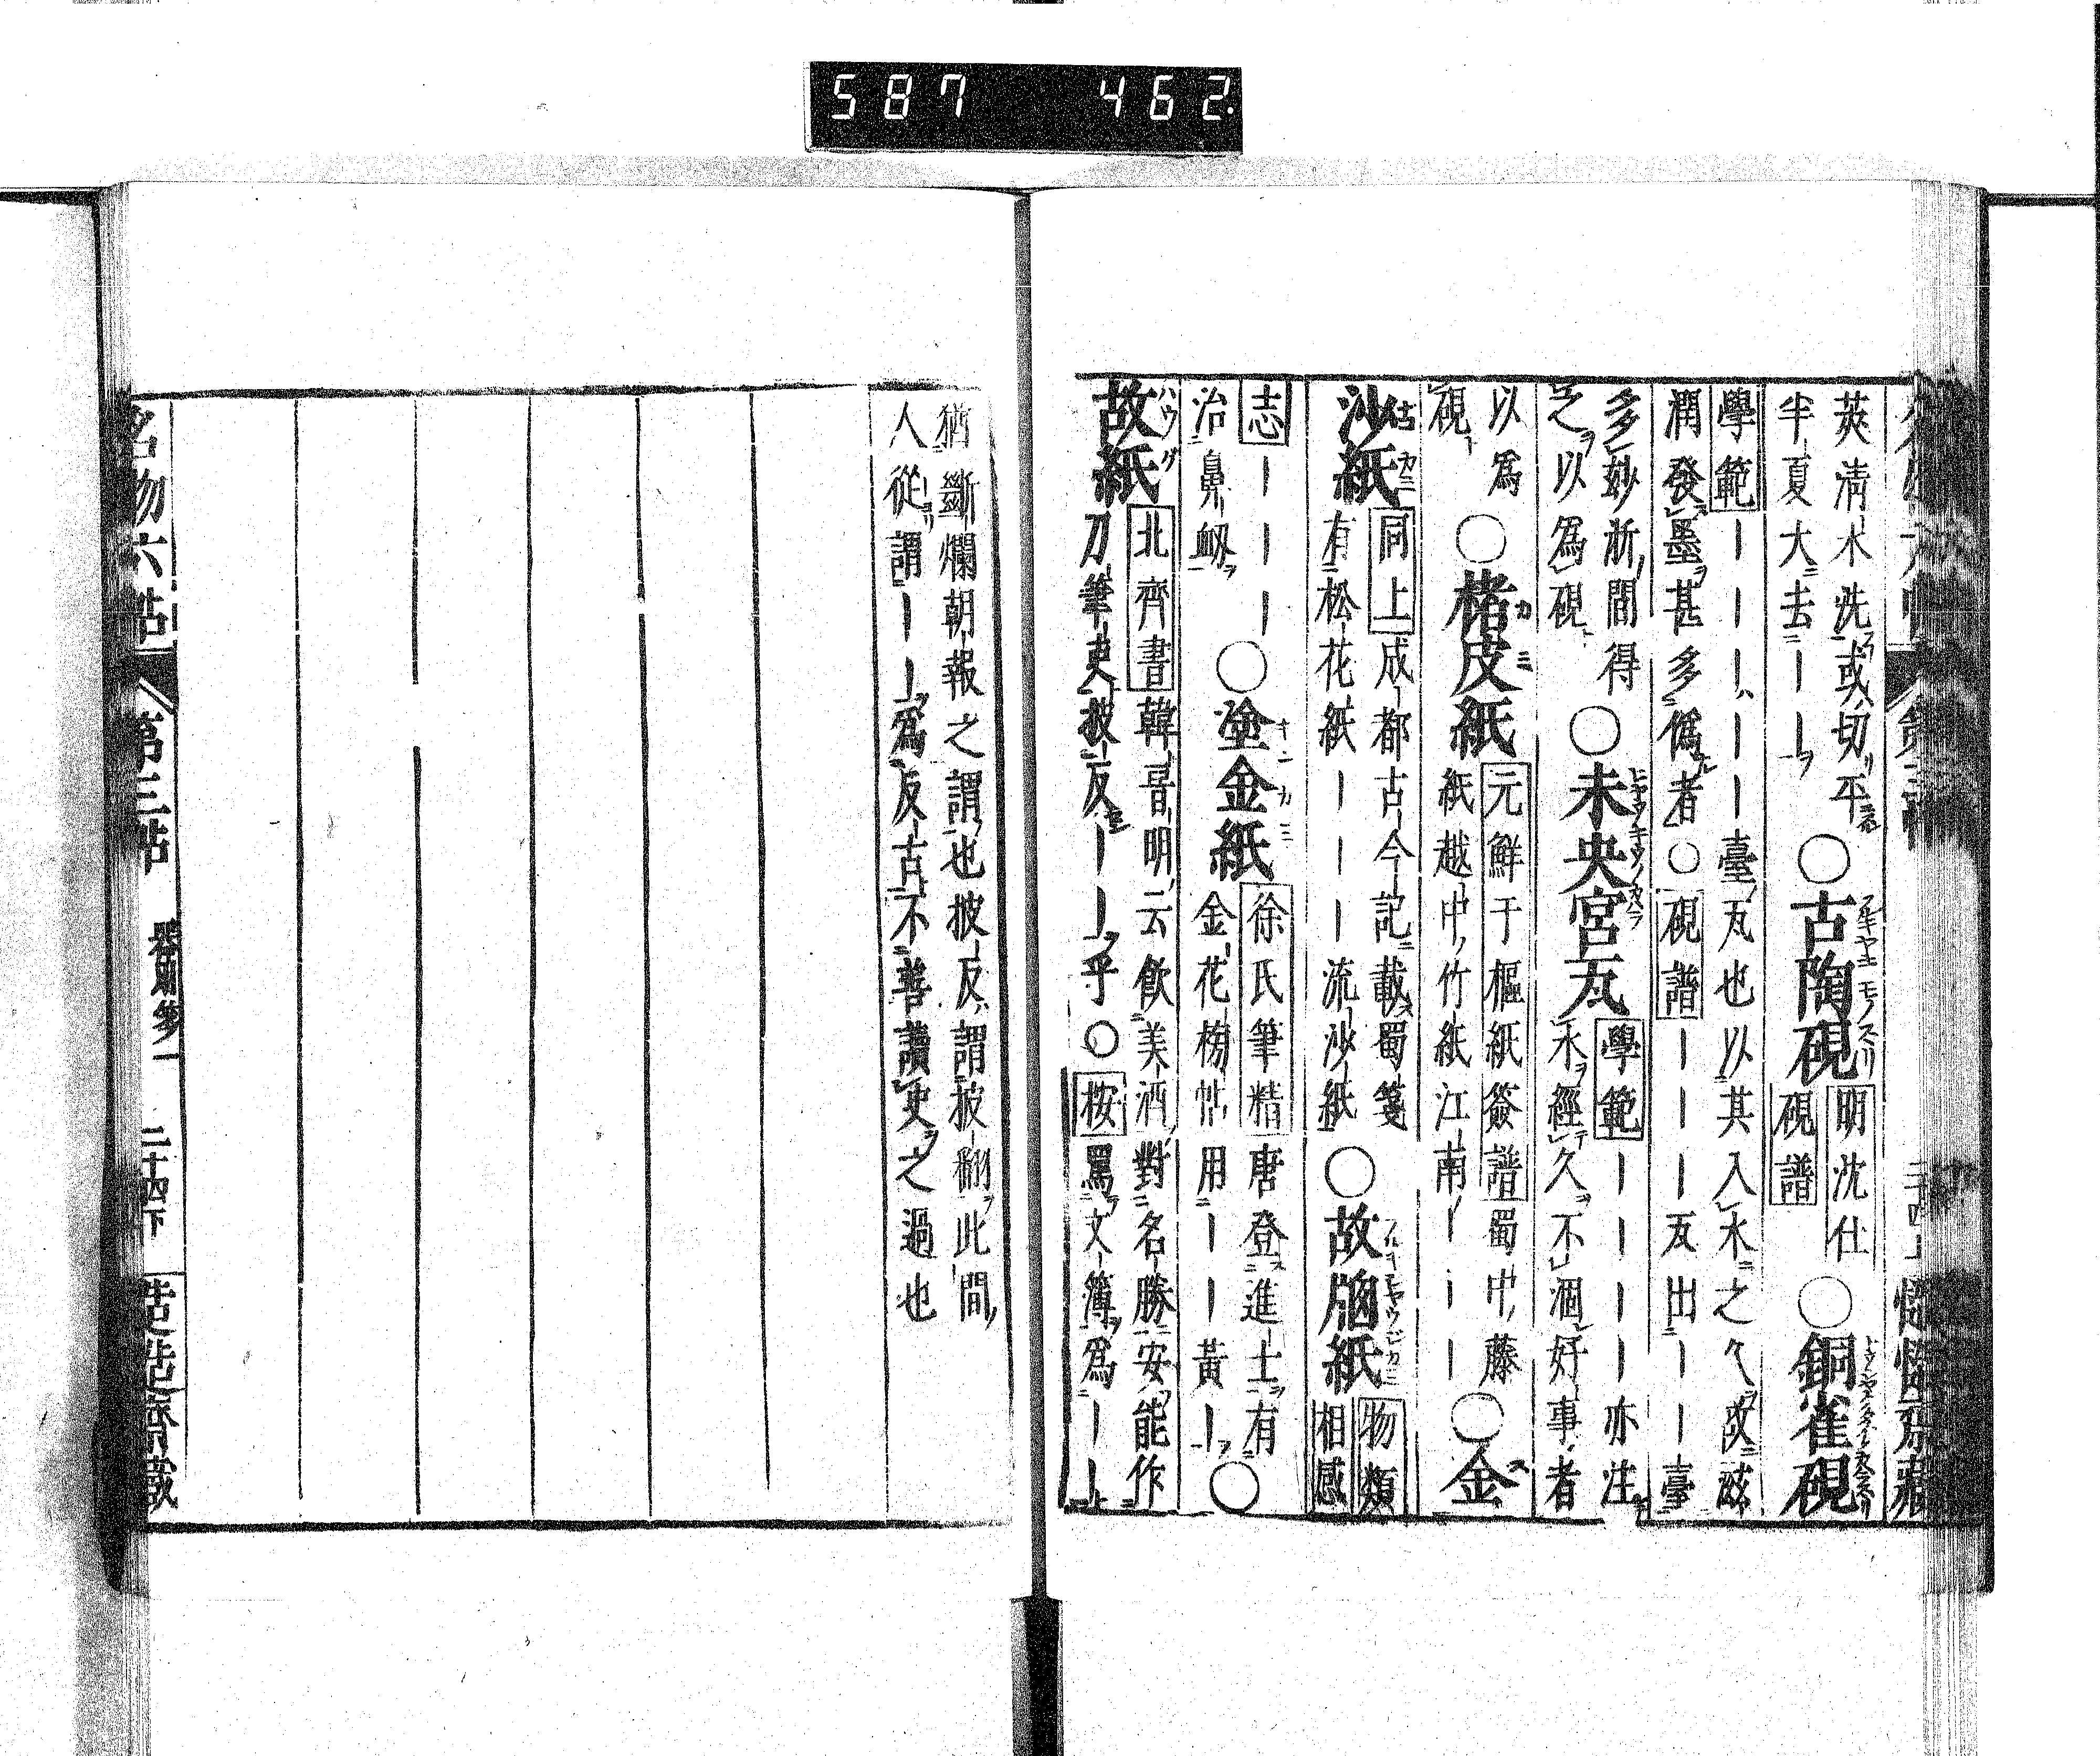 587 462
莢清水洗或切平
半夏大去ーー
○古陶硯
明沈仕
硯譜
○銅雀硯
學範ーーーーー臺瓦也以其入水之久故玆
潤發墨甚多僞者○硯譜ーーー瓦出ーー臺
多妙浙間得
之以爲硯
○未央宮瓦
學範ーーーー亦注
水經久不涸好事者
以爲
硯
○楮皮紙
元鮮于樞紙箋譜蜀中藤
紙越中竹紙江南ーーー
○金
沙紙
同上成都古今記載蜀箋
有松花紙ーーー流沙紙
○故牕紙
物類
相感
志ーーーー
治鼻衂
○塗金紙
徐氏筆精唐登進士有
金花榜帖用ーー黃ー
○
故紙
北齊書韓晉明云飮美酒對名勝安能作
刀筆吏披反ーーー乎○按罵文簿爲ーー
猶斷爛朝報之謂也披反謂披翻此間
人從謂ーー爲反古不善讀史之過也
名物六帖
第三帖
器財箋一
二十四下